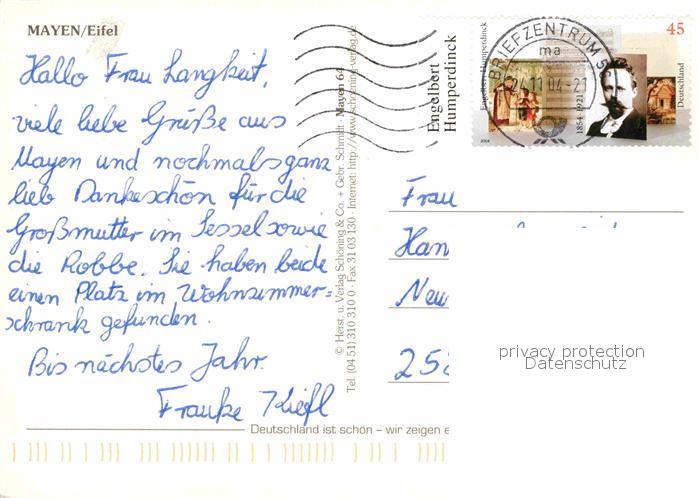 MAYEN/Eifel
Hallo Frau Langkeit,
viele liebe Grüße aus
Mayen und nochmals ganz
lieb Dankeschön für die
Großmutter im Sessel sowie
die Robbe. Sie haben beide
einen Platz im Wohnzimmer=
schrank gefunden.
Bis nächstes Jahr.
Frauke Kiefl
© Herst. u. Verlag Schöning & Co. + Gebr. Schmidt Mayen 64
Tel. (04 51) 310 310 0 - Fax 31 03 130 - Internet: http://www.schoening-verlag.de
Engelbert
Humperdinck
Engelbert Humperdinck
1854-1921
2004
45
Deutschland
BRIEFZENTRUM 5
ma
24.11.04-21
Frau
Han
Neu
25
privacy protection
Datenschutz
Deutschland ist schön – wir zeigen e